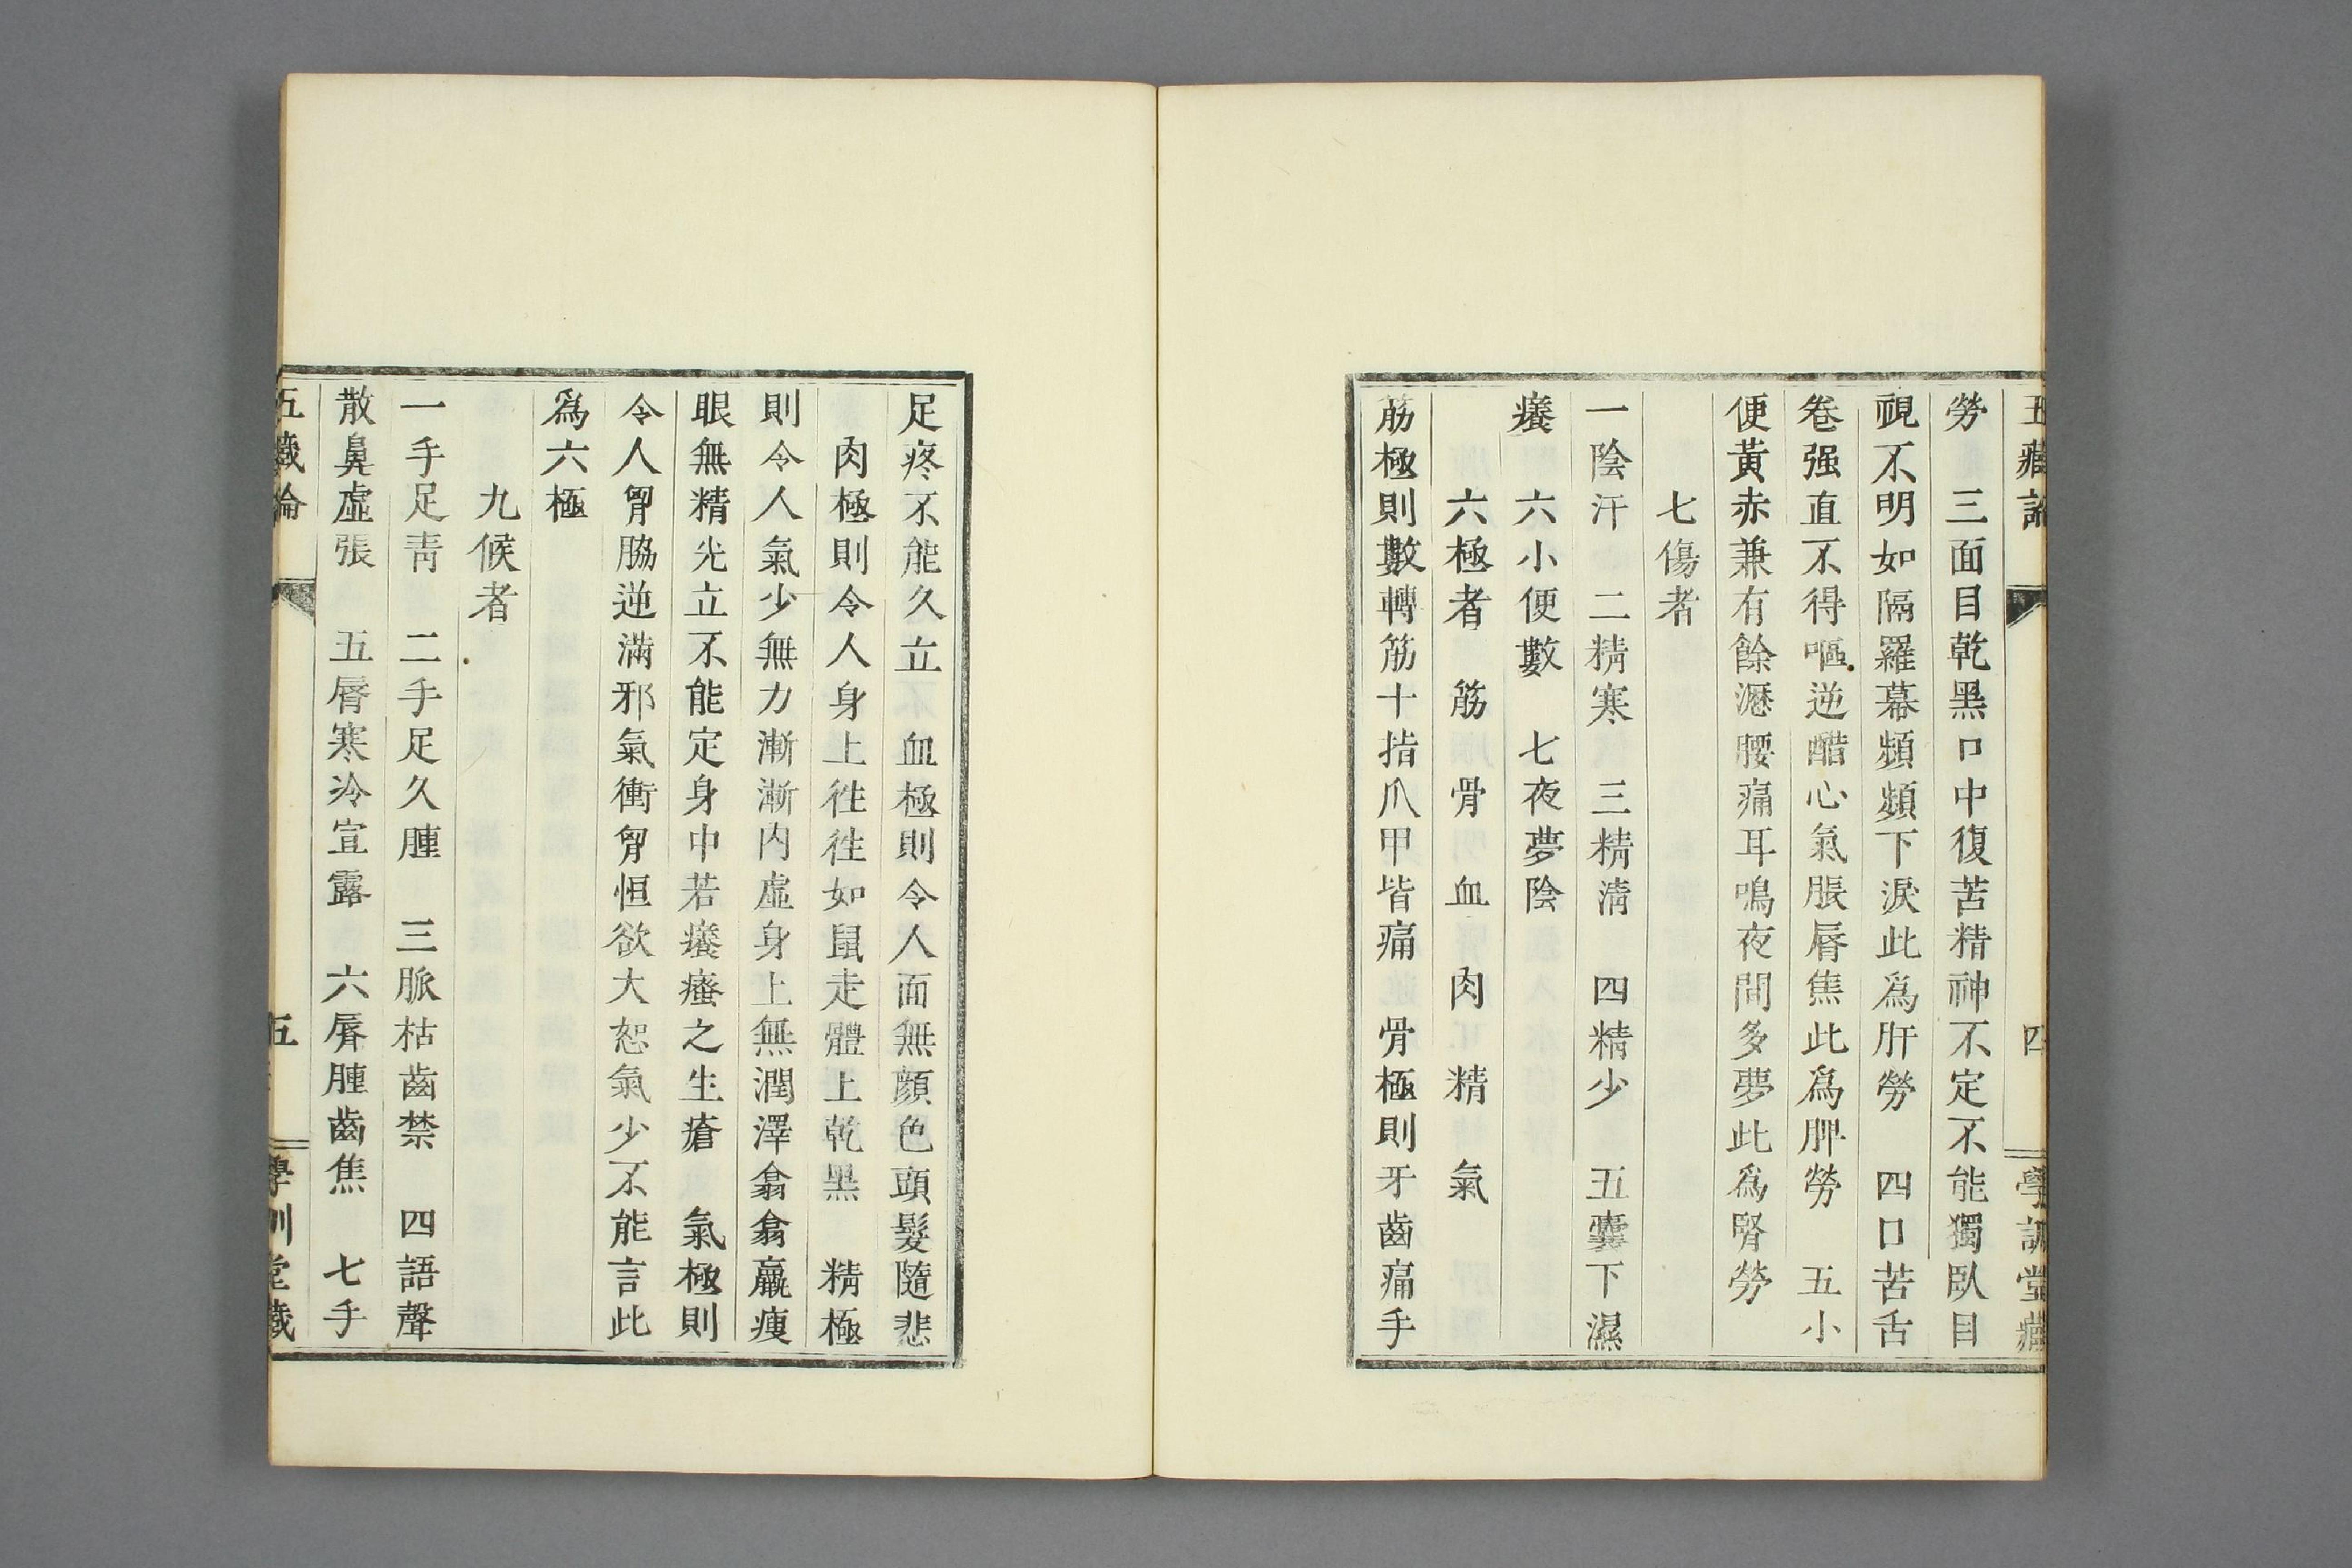 五藏論 四 學訓堂藏
勞 三面目乾黑口中復苦精神不定不能獨臥目
視不明如隔羅幕頻頻下淚此爲肝勞 四口苦舌
卷强直不得嘔逆醋心氣脹脣焦此爲脾勞 五小
便黃赤兼有餘瀝腰痛耳鳴夜間多夢此爲腎勞
七傷者
一陰汗 二精寒 三精淸 四精少 五囊下濕
癢 六小便數 七夜夢陰
六極者 筋 骨 血 肉 精 氣
筋極則數轉筋十指爪甲皆痛 骨極則牙齒痛手
足疼不能久立 血極則令人面無顏色頭髮隨悲
肉極則令人身上徃徃如鼠走體上乾黑 精極
則令人氣少無力漸漸內虛身上無潤澤翕翕羸瘦
眼無精光立不能定身中若癢瘙之生瘡 氣極則
令人胷脇逆滿邪氣衝胷恒欲大恕氣少不能言此
爲六極
九候者
一手足靑 二手足久腫 三脈枯齒禁 四語聲
散鼻虛張 五脣寒冷宣露 六脣腫齒焦 七手
五藏論 五 學訓堂藏